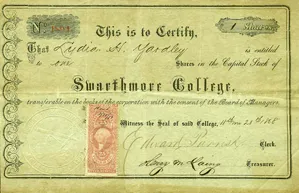 No.
1 Shares
This is to Certify,
That Lydia H. Yardley is entitled
to one Shares in the Capital Stock of
Swarthmore College,
transferable on the books of the corporation with the consent of the Board of Managers
Witness the Seal of said College, 11th mo 23rd 186
Edward Clerk.
Treasurer.